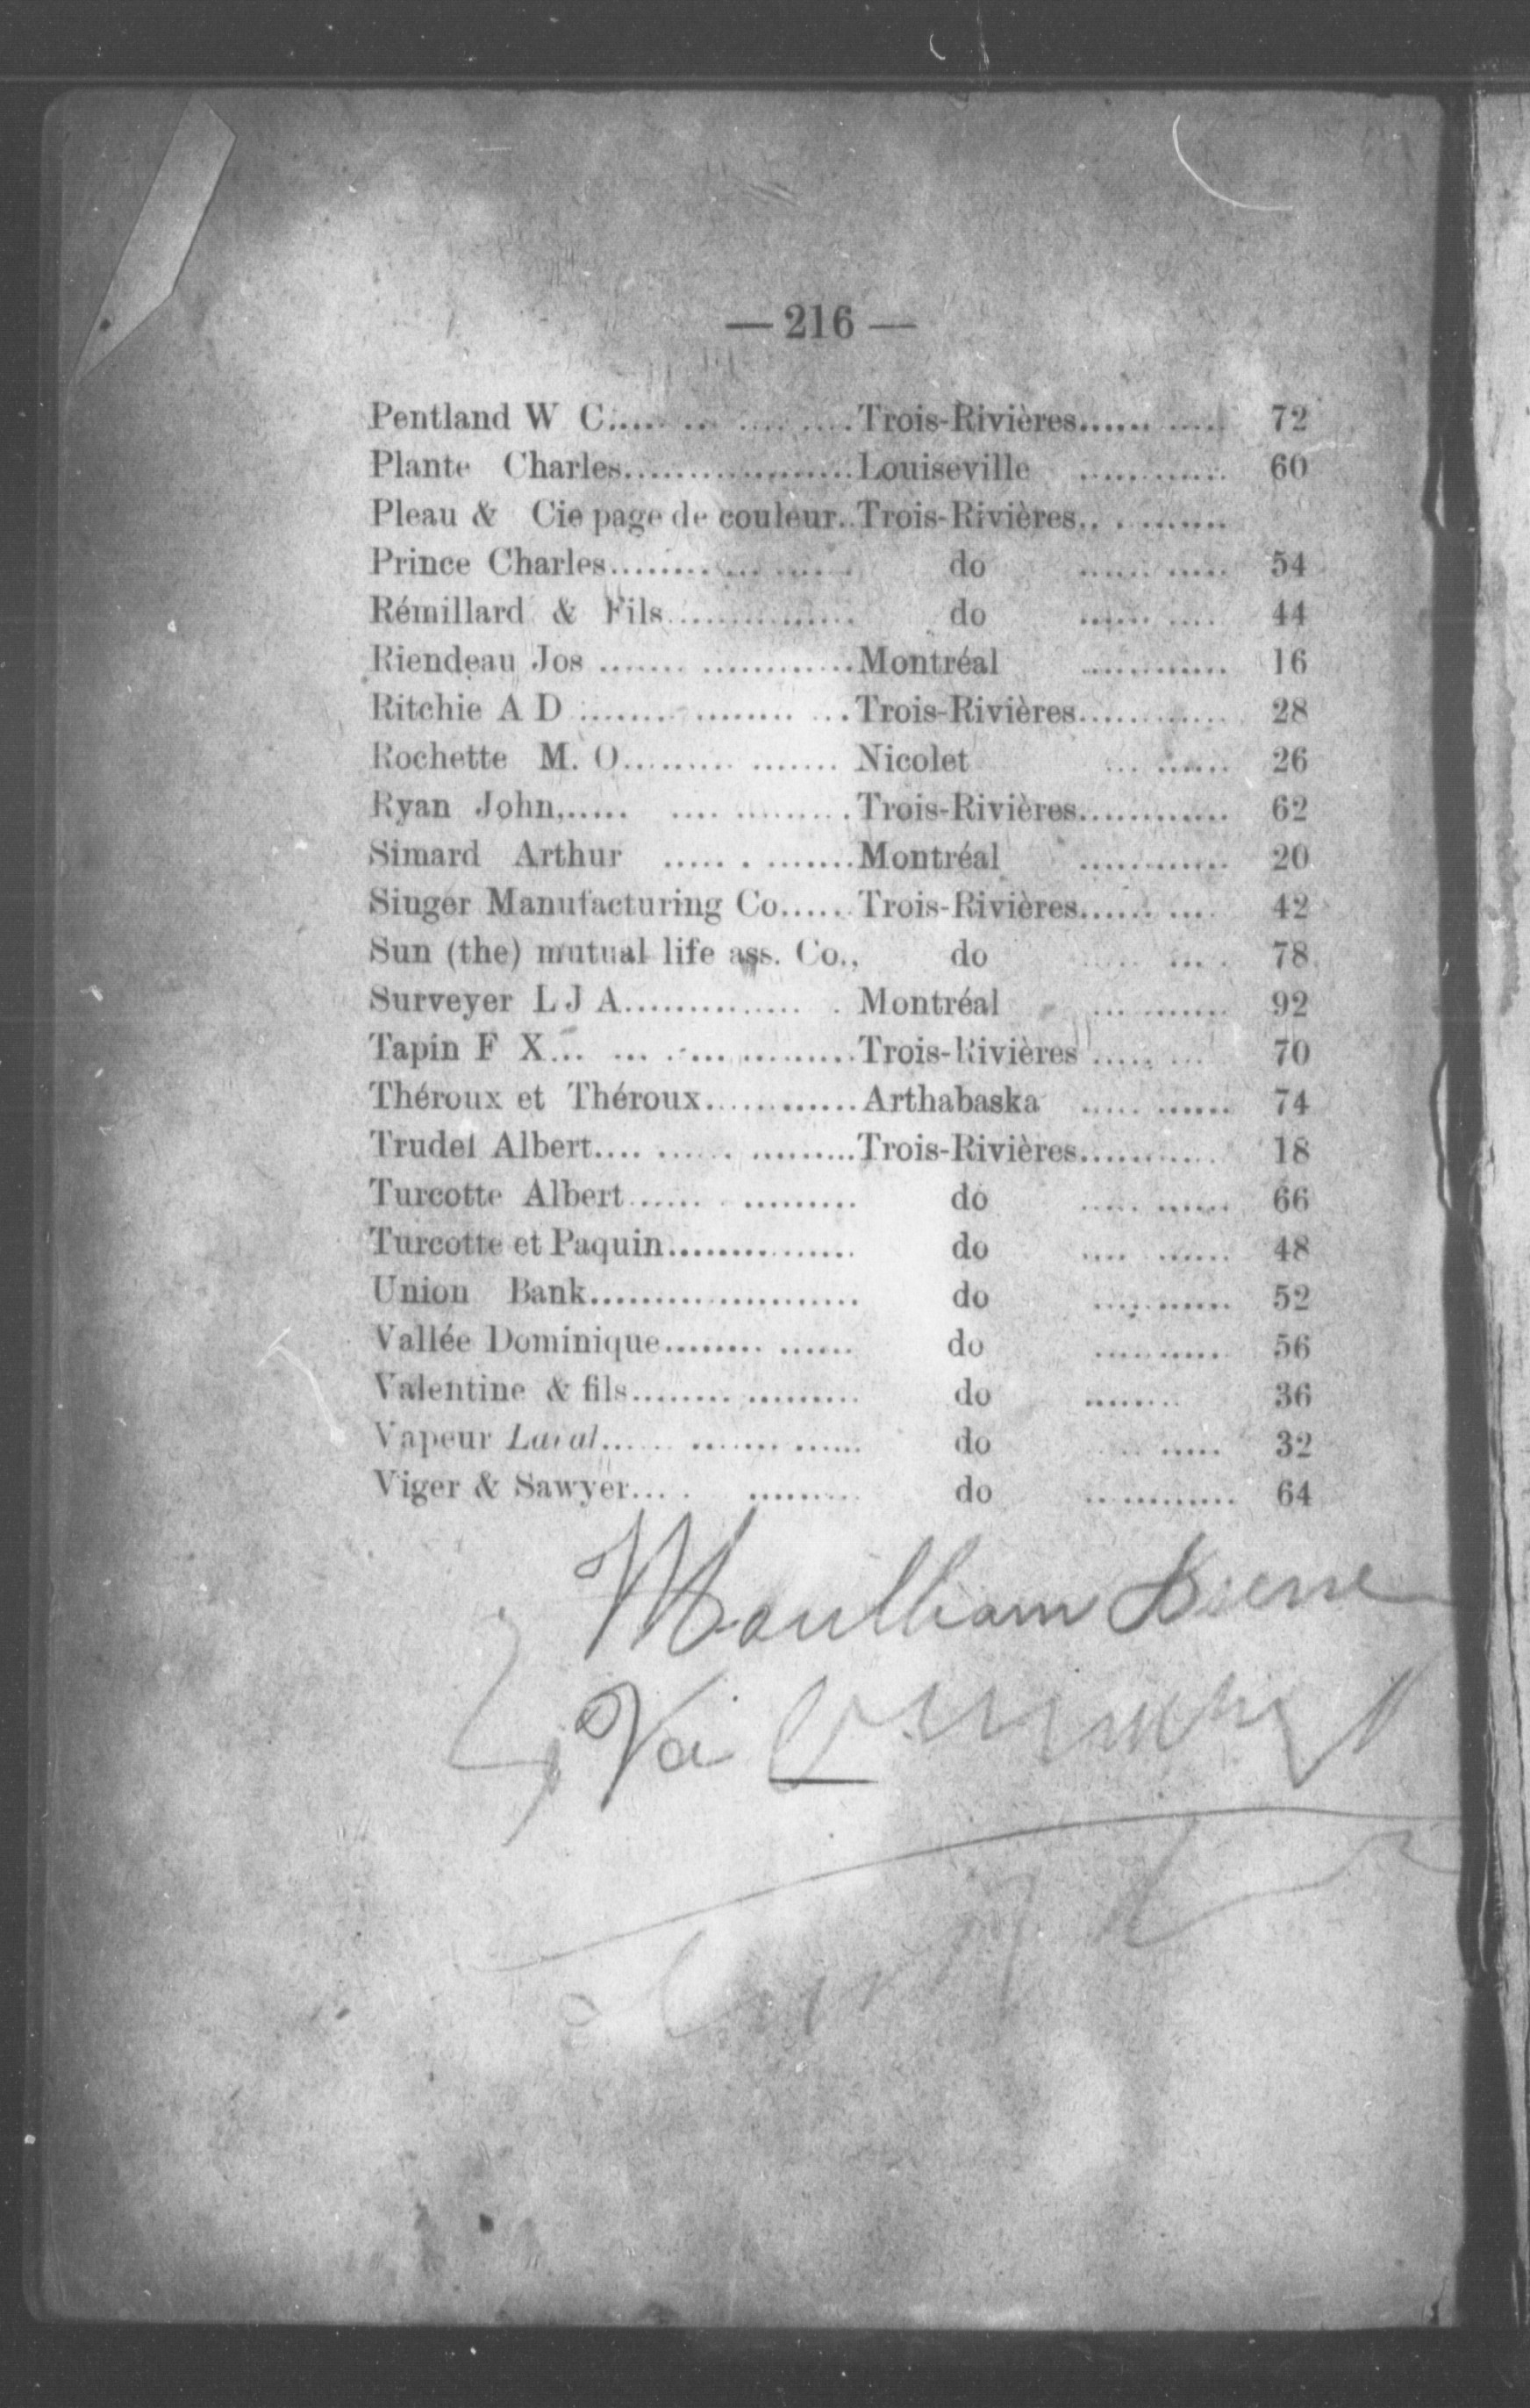 — 216 —
Pentland W C.................... Trois-Rivières............ 72
Plante Charles.................. Louiseville ............ 60
Pleau & Cie page de couleur.. Trois-Rivières.. . .......
Prince Charles.................. do ...... ..... 54
Rémillard & Fils............... do ...... .... 44
Riendeau Jos ....... ............ Montréal ............ 16
Ritchie A D ....... ........ ... Trois-Rivières............ 28
Rochette M. O......... ....... Nicolet ... ...... 26
Ryan John,..... .... ......... Trois-Rivières............ 62
Simard Arthur ..... . ....... Montréal ............ 20
Singer Manufacturing Co...... Trois-Rivières...... .... 42
Sun (the) mutual life ass. Co., do ..... ... . 78
Surveyer L J A.............. . Montréal ... ........ 92
Tapin F X... ... ............. Trois-Rivières ..... ... 70
Théroux et Théroux............ Arthabaska ..... ...... 74
Trudel Albert.... ...... ......... Trois-Rivières........... 18
Turcotte Albert...... . ......... do ..... ...... 66
Turcotte et Paquin............... do .... ...... 48
Union Bank..................... do ........... 52
Vallée Dominique........ ...... do .......... 56
Valentine & fils........ ......... do ........ 36
Vapeur Laval...... ....... ...... do .... ..... 32
Viger & Sawyer... . ......... do .. ........... 64